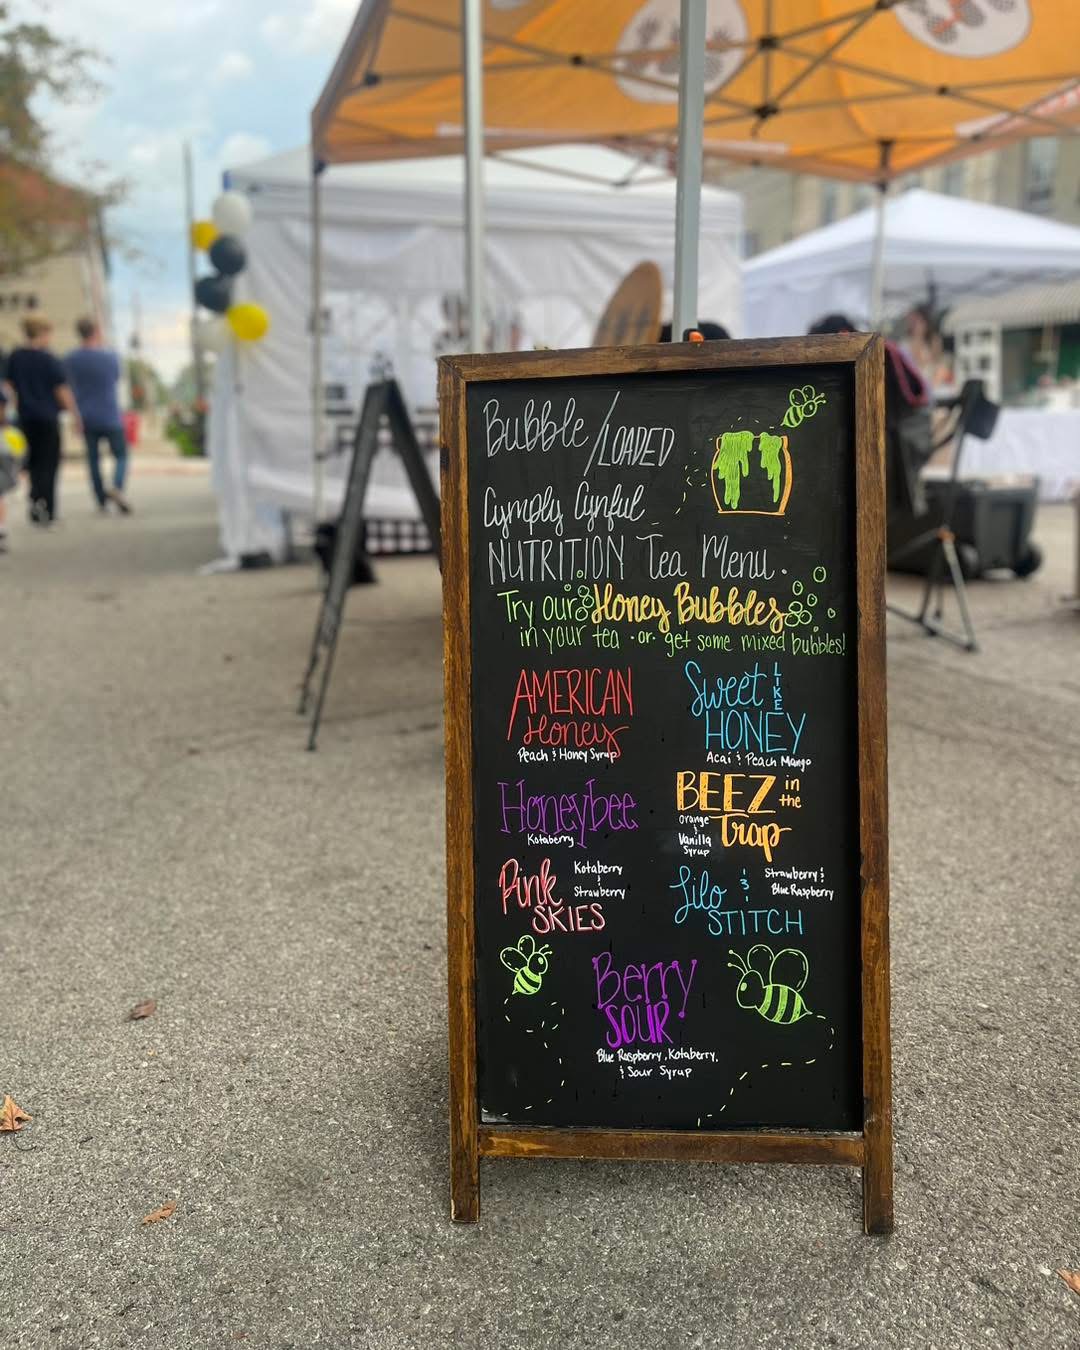 Bubble / LOADED
Cymply Cynful
NUTRITION Tea Menu.
Try our Honey Bubbles
in your tea · or · get some mixed bubbles!
AMERICAN
Honey
Peach & Honey Syrup
Sweet LIKE
HONEY
Acai & Peach Mango
Honeybee
Kotaberry
BEEZ in the
Trap
Orange
&
Vanilla
Syrup
Pink
SKIES
Kotaberry
&
Strawberry
Lilo &
STITCH
Strawberry &
Blue Raspberry
Berry
SOUR
Blue Raspberry, Kotaberry,
& Sour Syrup